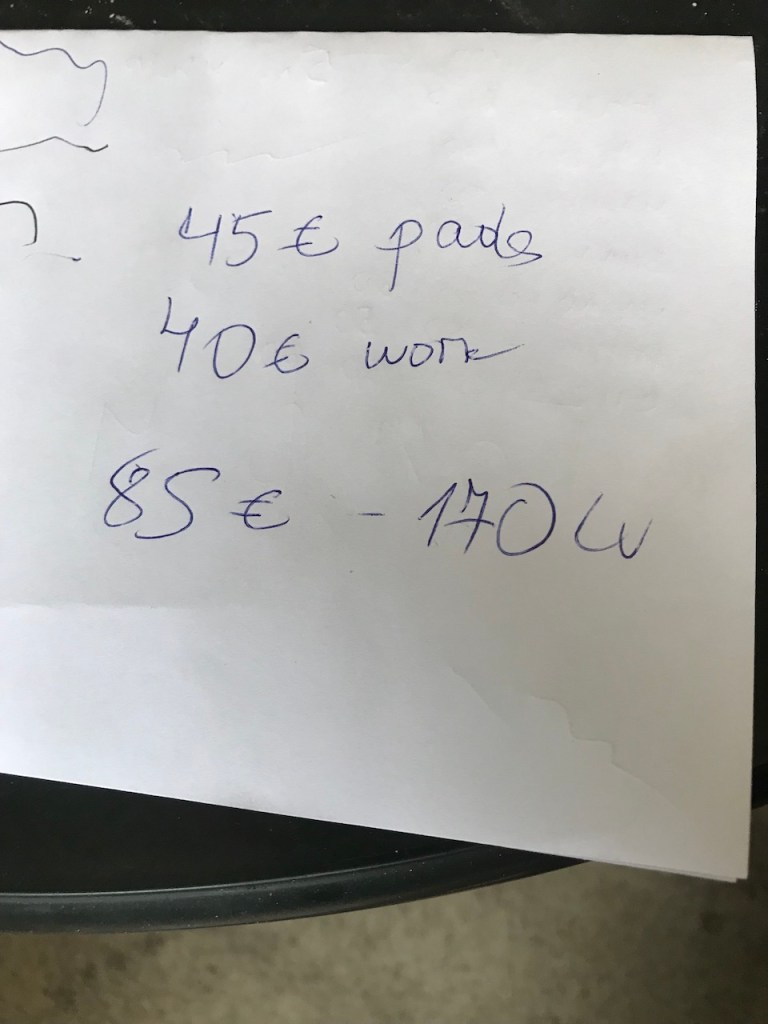 45€ pads
40€ work
85€ - 170 Lv